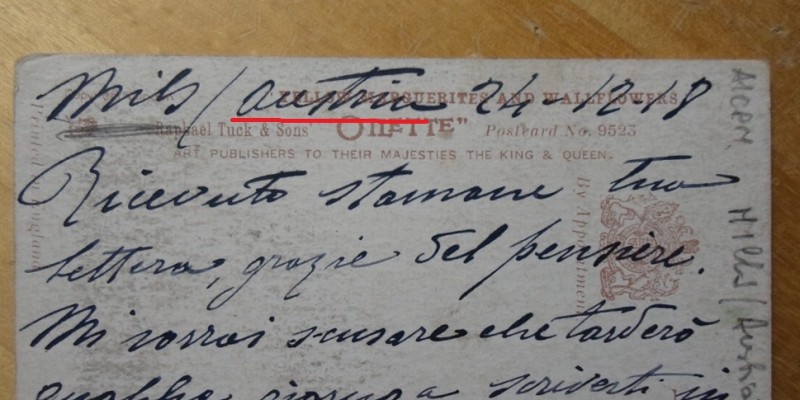 Mils / Austria 24-12-18
YELLOW MARGUERITES AND WALLFLOWERS
Raphael Tuck & Sons' "OILETTE" Postcard No. 9523
ART PUBLISHERS TO THEIR MAJESTIES THE KING & QUEEN.
Ricevuto stamane tua
lettera, grazie del pensiere.
Mi vorrai scusare che tarderò
qualche giorno a scriverti in
Printed in England
By Appointment
Mils / Austria